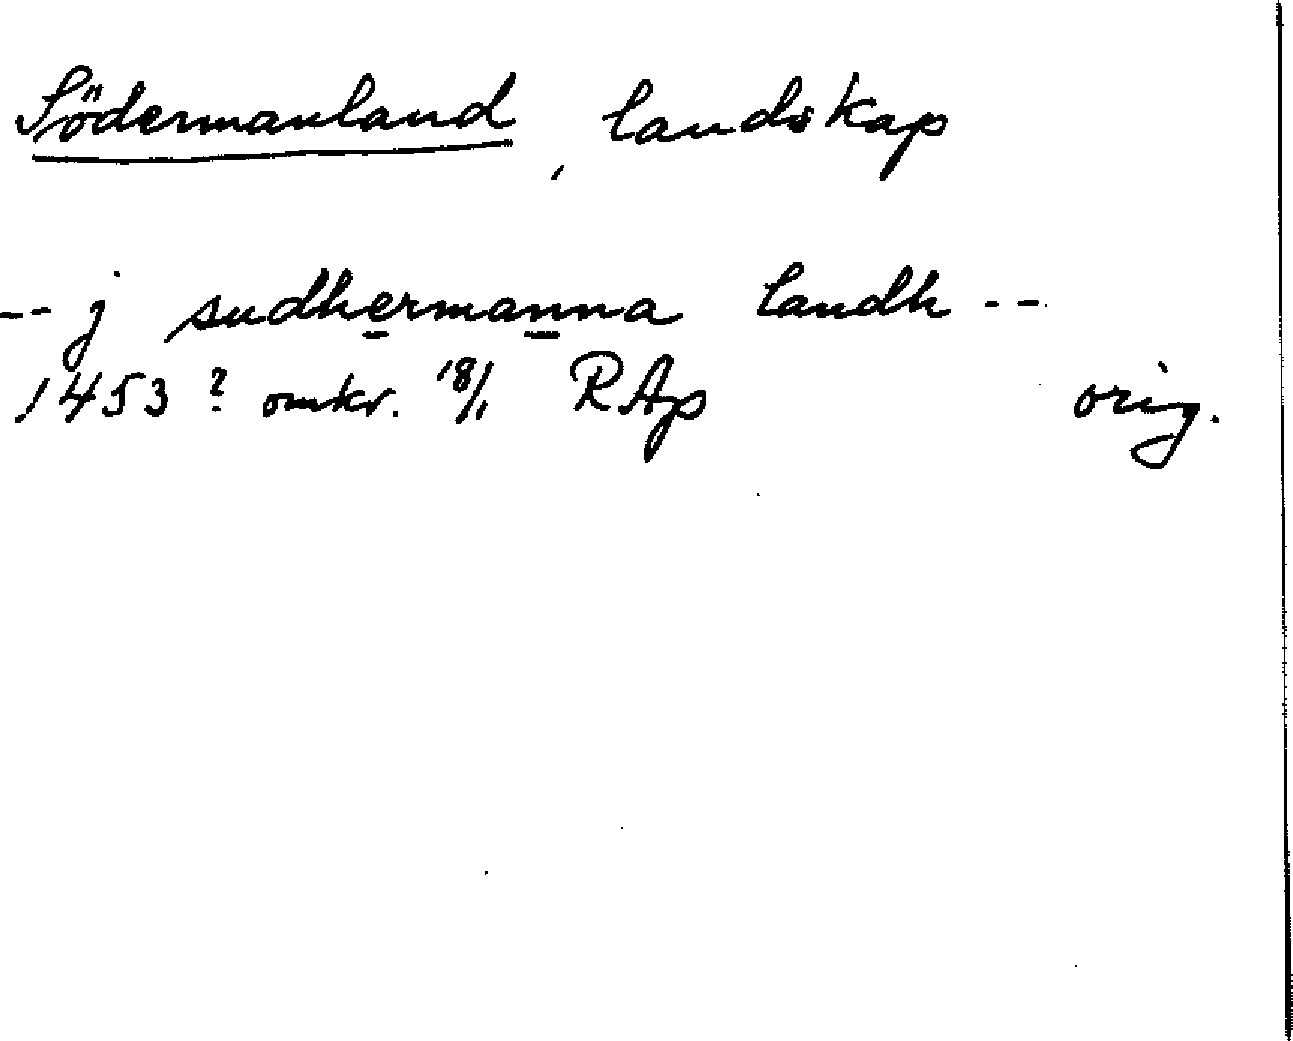 Södermanland, landskap
-- j sudhermanna landh --
1453? omkr. 18/1 RAp orig.